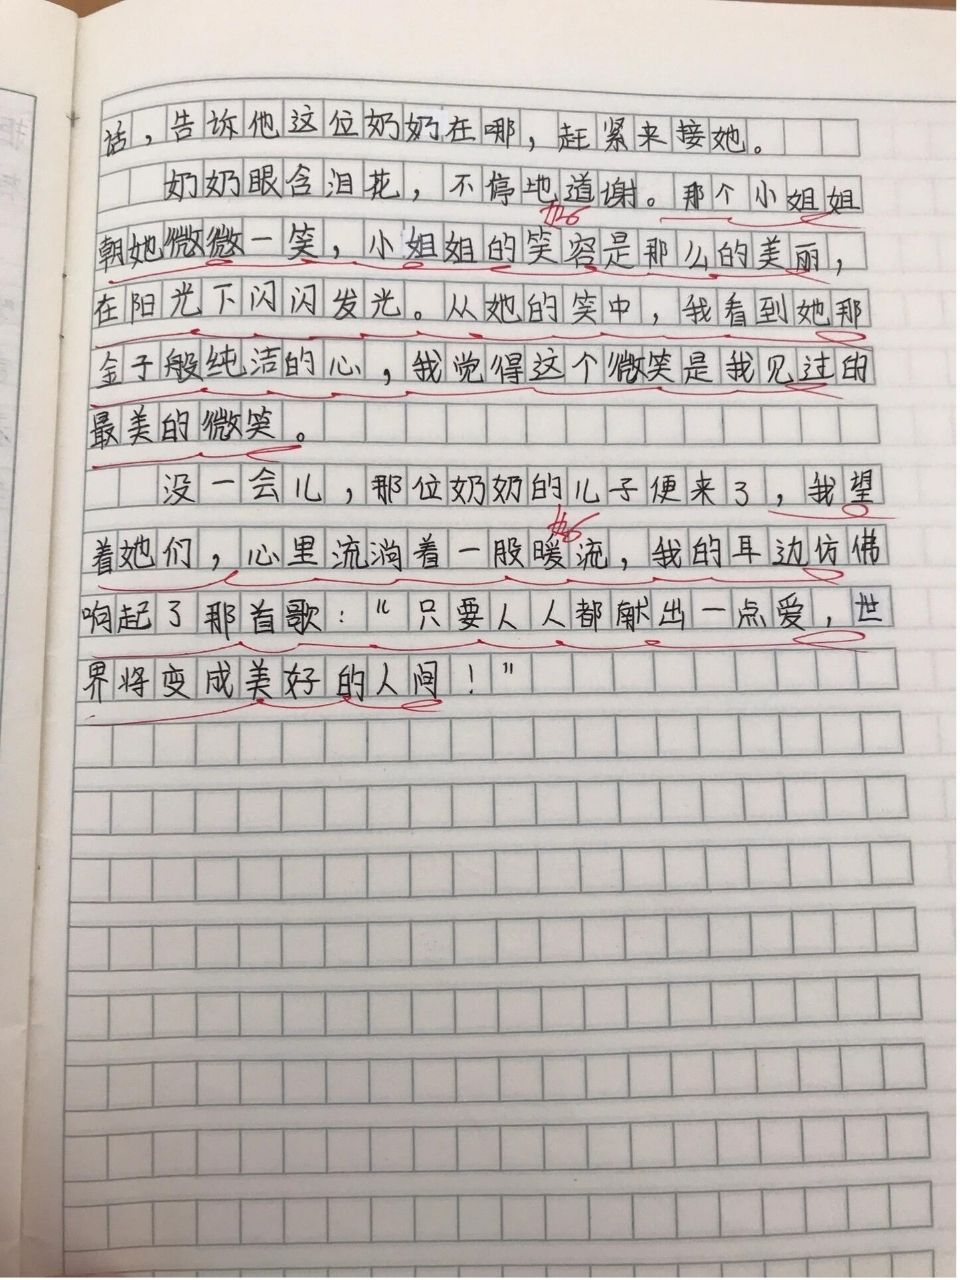 话，告诉他这位奶奶在哪，赶紧来接她。
奶奶眼含泪花，不停地道谢。那个小姐姐
朝她微微一笑，小姐姐的笑容是那么的美丽，
在阳光下闪闪发光。从她的笑中，我看到她那
金子般纯洁的心，我觉得这个微笑是我见过的
最美的微笑。
没一会儿，那位奶奶的儿子便来了，我望
着她们，心里流淌着一股暖流，我的耳边仿佛
响起了那首歌：“只要人人都献出一点爱，世
界将变成美好的人间！”